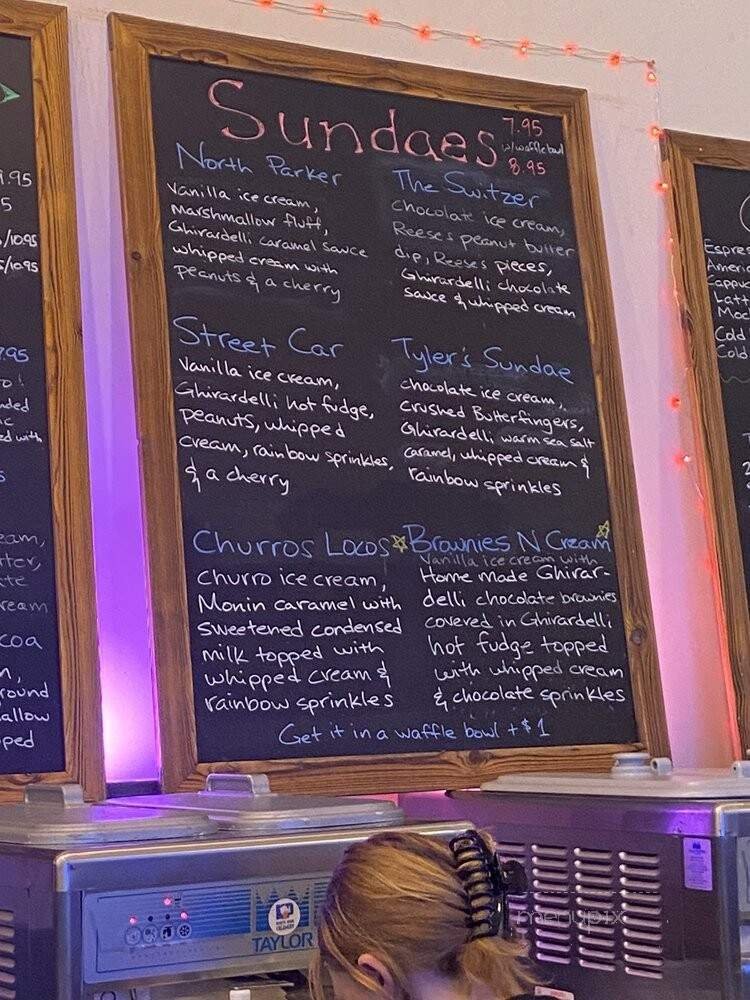 Sundaes
7.95
w/waffle bowl
8.95
North Parker
Vanilla ice cream,
Marshmallow fluff,
Ghirardelli caramel sauce
whipped cream with
peanuts & a cherry
The Switzer
chocolate ice cream,
Reese's peanut butter
dip, Reese's pieces,
Ghirardelli chocolate
sauce & whipped cream
Street Car
Vanilla ice cream,
Ghirardelli hot fudge,
peanuts, whipped
cream, rainbow sprinkles,
& a cherry
Tyler's Sundae
chocolate ice cream,
crushed Butterfingers,
Ghirardelli warm sea salt
caramel, whipped cream &
rainbow sprinkles
Churros Locos
Churro ice cream,
Monin caramel with
sweetened condensed
milk topped with
whipped cream &
rainbow sprinkles
Brownies N Cream
Vanilla ice cream with
Home made Ghirar-
delli chocolate brownies
covered in Ghirardelli
hot fudge topped
with whipped cream
& chocolate sprinkles
Get it in a waffle bowl + $1
9.95
5
/10.95
5/10.95
7.95
o!
nded
ic
ed with
s
eam,
rter,
te
ream
coa
n,
round
allow
ped
Espres
Ameri
Cappuc
Latt
Moc
Cold
Cold
TAYLOR
menypix